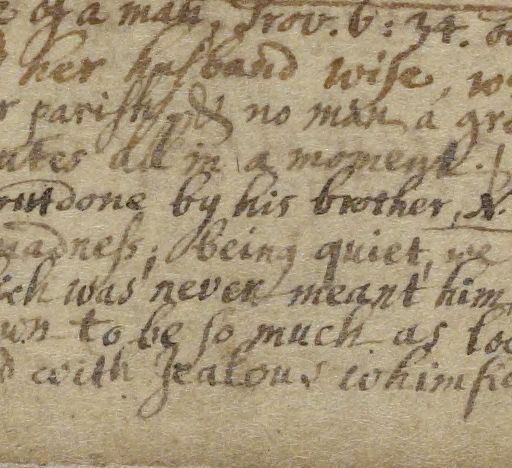 of a man, Prov. 6: 34.
her husband wise,
parish, & no man a
all in a moment.
outdone by his brother, N.
madness; being quiet, we
was never meant him
to be so much as
with Jealous whimsie